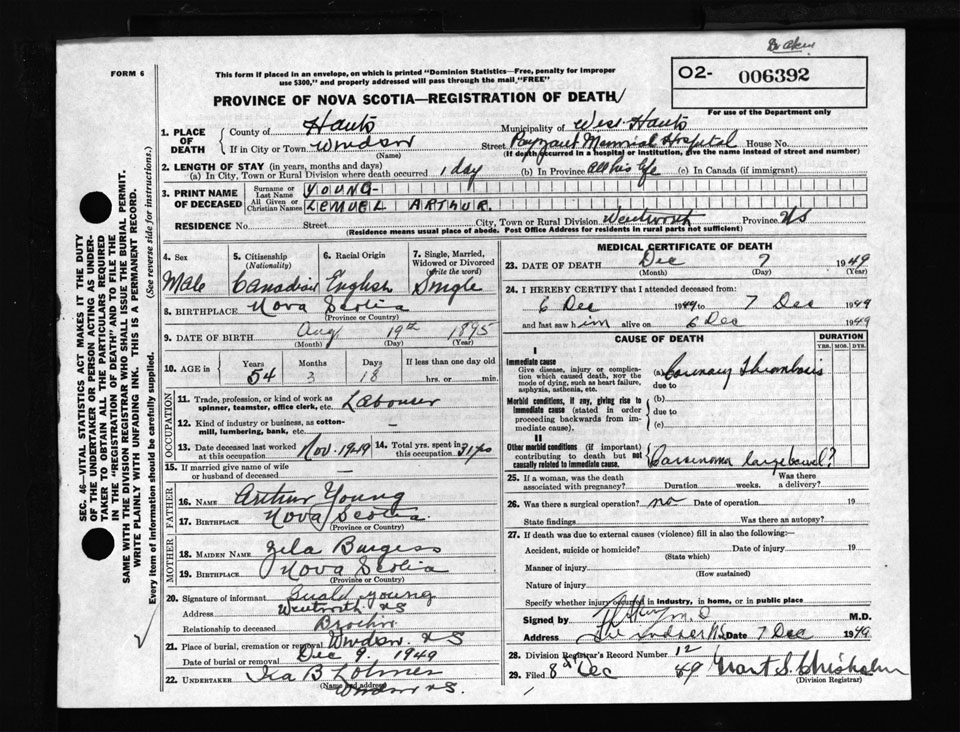 FORM 6
This form if placed in an envelope, on which is printed "Dominion Statistics—Free, penalty for improper
use $300," and properly addressed will pass through the mail "FREE"
O2- 006392
PROVINCE OF NOVA SCOTIA—REGISTRATION OF DEATH
For use of the Department only
1. PLACE OF DEATH { County of Hants Municipality of West Hants
If in City or Town Windsor (Name) Street Payzant Memorial Hospital House No.
(If death occurred in a hospital or institution, give the name instead of street and number)
2. LENGTH OF STAY (in years, months and days)
(a) In City, Town or Rural Division where death occurred 1 day (b) In Province all his life (c) In Canada (if immigrant)
3. PRINT NAME OF DECEASED
Surname or Last Name YOUNG-
All Given or Christian Names LEMUEL ARTHUR.
RESIDENCE No. Street City, Town or Rural Division Wentworth Province NS
(Residence means usual place of abode. Post Office Address for residents in rural parts not sufficient)
4. Sex Male
5. Citizenship (Nationality) Canadian
6. Racial Origin English
7. Single, Married, Widowed or Divorced (Write the word) Single
8. BIRTHPLACE Nova Scotia
(Province or Country)
9. DATE OF BIRTH Aug 19th 1895
(Month) (Day) (Year)
10. AGE in { Years 54 Months 3 Days 18 If less than one day old hrs. or min.
OCCUPATION
11. Trade, profession, or kind of work as spinner, teamster, office clerk, etc. Labourer
12. Kind of industry or business, as cotton-mill, lumbering, bank, etc. —
13. Date deceased last worked at this occupation Nov. 1949
14. Total yrs. spent in this occupation 31 yrs
15. If married give name of wife or husband of deceased —
FATHER
16. NAME Arthur Young
17. BIRTHPLACE Nova Scotia
(Province or Country)
MOTHER
18. MAIDEN NAME Zela Burgess
19. BIRTHPLACE Nova Scotia
(Province or Country)
20. Signature of informant Young
Address Wentworth NS
Relationship to deceased Brother
21. Place of burial, cremation or removal Windsor NS
Date of burial or removal Dec 9. 1949
22. UNDERTAKER Ira B
(Name and address) Windsor N.S.
MEDICAL CERTIFICATE OF DEATH
23. DATE OF DEATH Dec 7 1949
(Month) (Day) (Year)
24. I HEREBY CERTIFY that I attended deceased from:
6 Dec 1949 to 7 Dec 1949
and last saw him alive on 6 Dec 1949
CAUSE OF DEATH DURATION
YRS. MOS. DYS.
I
Immediate cause
Give disease, injury or complication which caused death, NOT the mode of dying, such as heart failure, asphyxia, asthenia, etc.
(a) Coronary Thrombosis
due to
Morbid conditions, if any, giving rise to immediate cause (stated in order proceeding backwards from immediate cause).
(b)
due to
(c)
II
Other morbid conditions (if important) contributing to death but not causally related to immediate cause.
Carcinoma large bowel?
25. If a woman, was the death associated with pregnancy? Duration weeks. Was there a delivery?
26. Was there a surgical operation? no Date of operation 19
State findings Was there an autopsy?
27. If death was due to external causes (violence) fill in also the following:
Accident, suicide or homicide? Date of injury 19
(State which)
Manner of injury
(How sustained)
Nature of injury
Specify whether injury occurred in industry, in home, or in public place
Signed by M.D M.D.
Address Windsor N.S. Date 7 Dec 1949
28. Division Registrar's Record Number 12
29. Filed 8 Dec 49 Grant S. Chisholm
(Division Registrar)
SEC. 46—VITAL STATISTICS ACT MAKES IT THE DUTY
OF THE UNDERTAKER OR PERSON ACTING AS UNDER-
TAKER TO OBTAIN ALL THE PARTICULARS REQUIRED
IN THE "REGISTRATION OF DEATH" AND TO FILE THE
SAME WITH THE DIVISION REGISTRAR WHO SHALL ISSUE THE BURIAL PERMIT.
WRITE PLAINLY WITH UNFADING INK. THIS IS A PERMANENT RECORD.
Every item of information should be carefully supplied. (See reverse side for instructions.)